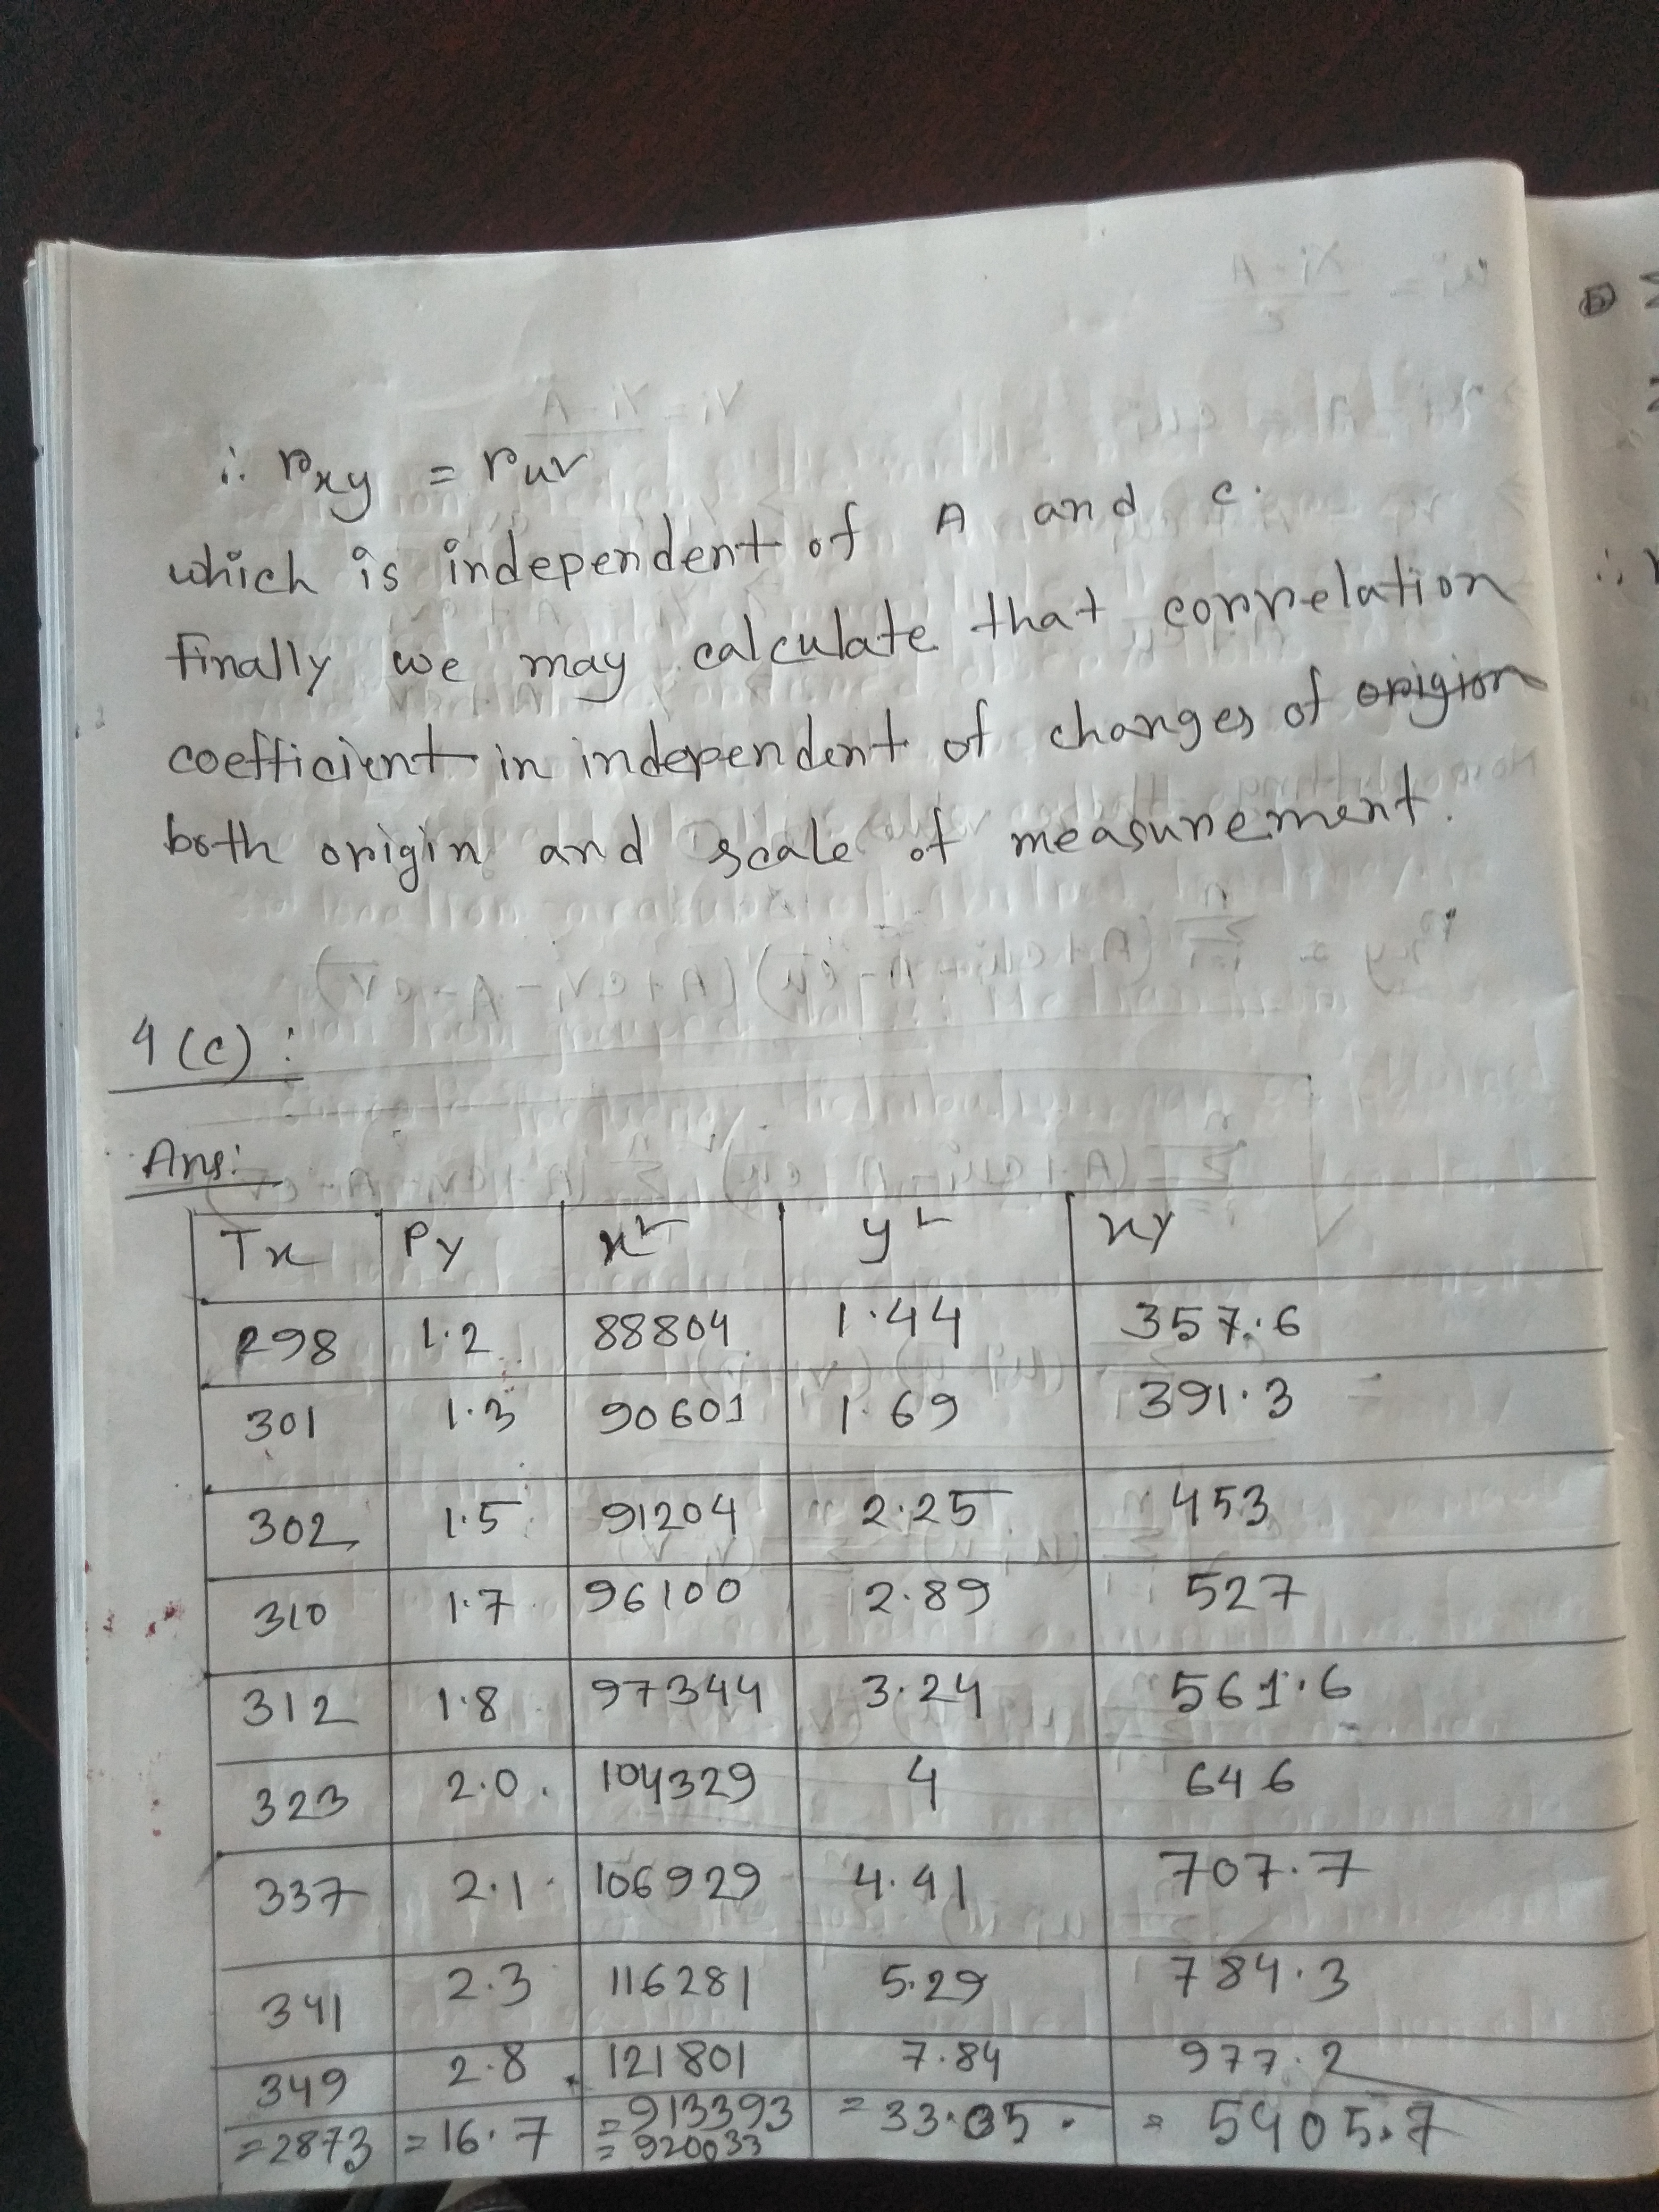 ∴ rxy = ruv
which is independent of A and c.
Finally we may calculate that correlation
coefficient in independent of changes of origion
both origin and scale of measurement.
4(c):
Ans:
Tx Py x² y² xy
298 1.2 88804 1.44 357.6
301 1.3 90601 1.69 391.3
302 1.5 91204 2.25 453
310 1.7 96100 2.89 527
312 1.8 97344 3.24 561.6
323 2.0 104329 4 646
337 2.1 106929 4.41 707.7
341 2.3 116281 5.29 784.3
349 2.8 121801 7.84 977.2
=2873 =16.7 =913393 =33.05 =5405.7
=920033